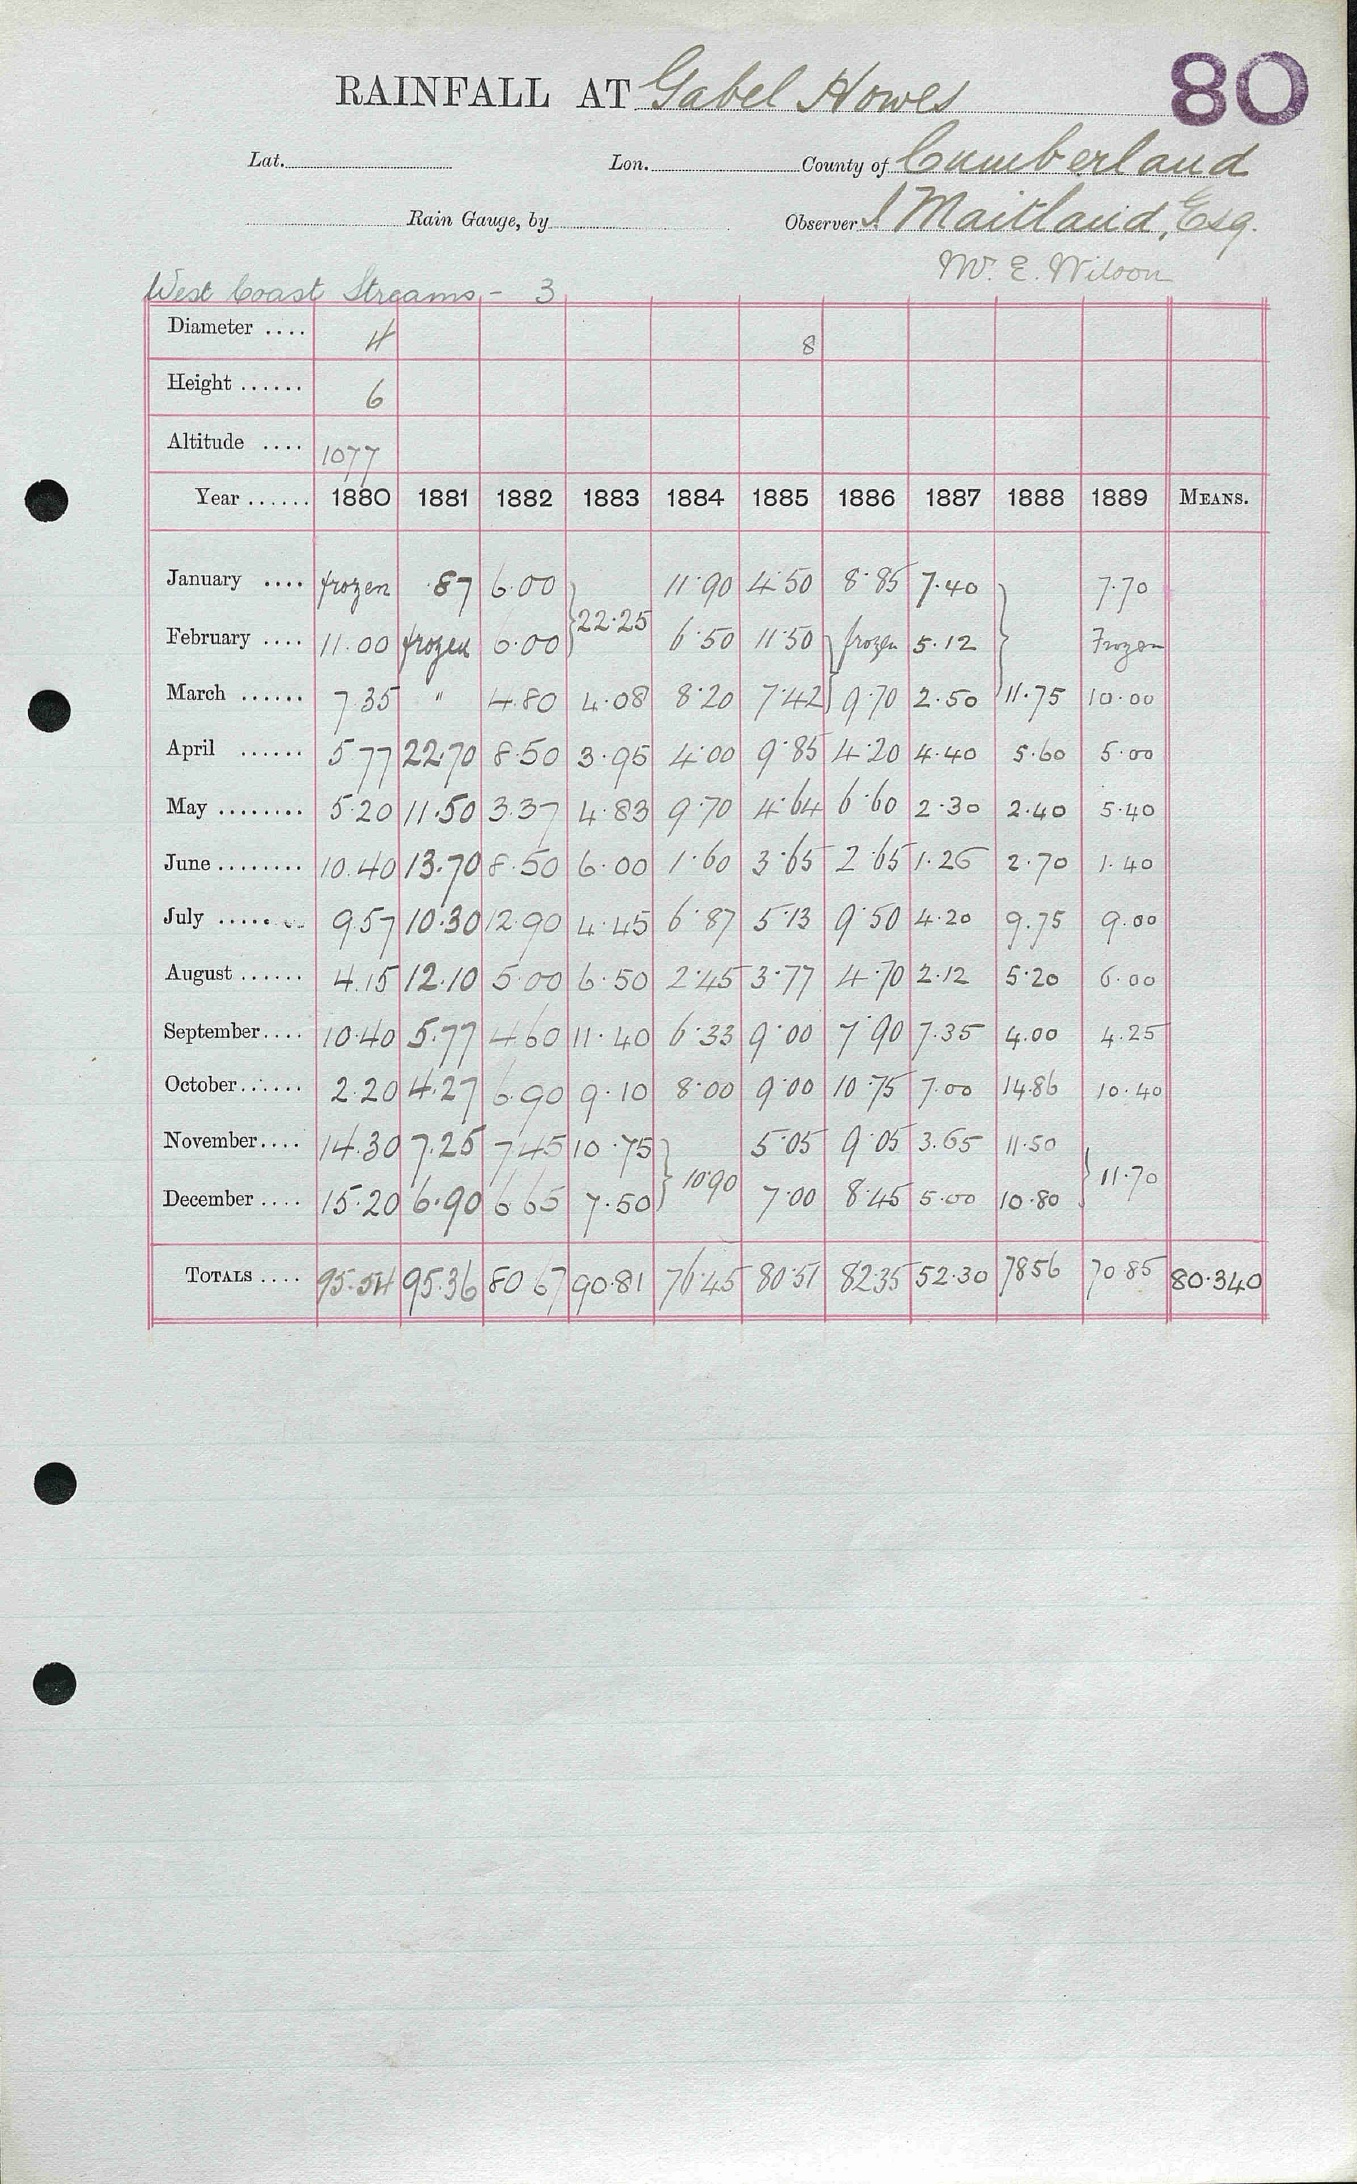 RAINFALL AT Gabel Howes 80
Lat. Lon. County of Cumberland
Rain Gauge, by Observer I Maitland, Esq.
W. E. Wilson
West Coast Streams - 3
Diameter .... 4 8
Height ...... 6
Altitude .... 1077
Year ...... 1880 1881 1882 1883 1884 1885 1886 1887 1888 1889 MEANS.
January .... frozen .87 6.00 } 11.90 4.50 8.85 7.40 } 7.70
22.25
February .... 11.00 frozen 6.00 6.50 11.50 } frozen 5.12 Frozen
March ...... 7.35 " 4.80 4.08 8.20 7.42 9.70 2.50 11.75 10.00
April ...... 5.77 22.70 8.50 3.95 4.00 9.85 4.20 4.40 5.60 5.00
May ........ 5.20 11.50 3.37 4.83 9.70 4.64 6.60 2.30 2.40 5.40
June ........ 10.40 13.70 8.50 6.00 1.60 3.65 2.65 1.26 2.70 1.40
July ........ 9.57 10.30 12.90 4.45 6.87 5.13 9.50 4.20 9.75 9.00
August ...... 4.15 12.10 5.00 6.50 2.45 3.77 4.70 2.12 5.20 6.00
September .... 10.40 5.77 4.60 11.40 6.33 9.00 7.90 7.35 4.00 4.25
October ...... 2.20 4.27 6.90 9.10 8.00 9.00 10.75 7.00 14.86 10.40
November .... 14.30 7.25 7.45 10.75 } 5.05 9.05 3.65 11.50 }
10.90 11.70
December .... 15.20 6.90 6.65 7.50 7.00 8.45 5.00 10.80
TOTALS .... 95.54 95.36 80.67 90.81 76.45 80.51 82.35 52.30 78.56 70.85 80.340